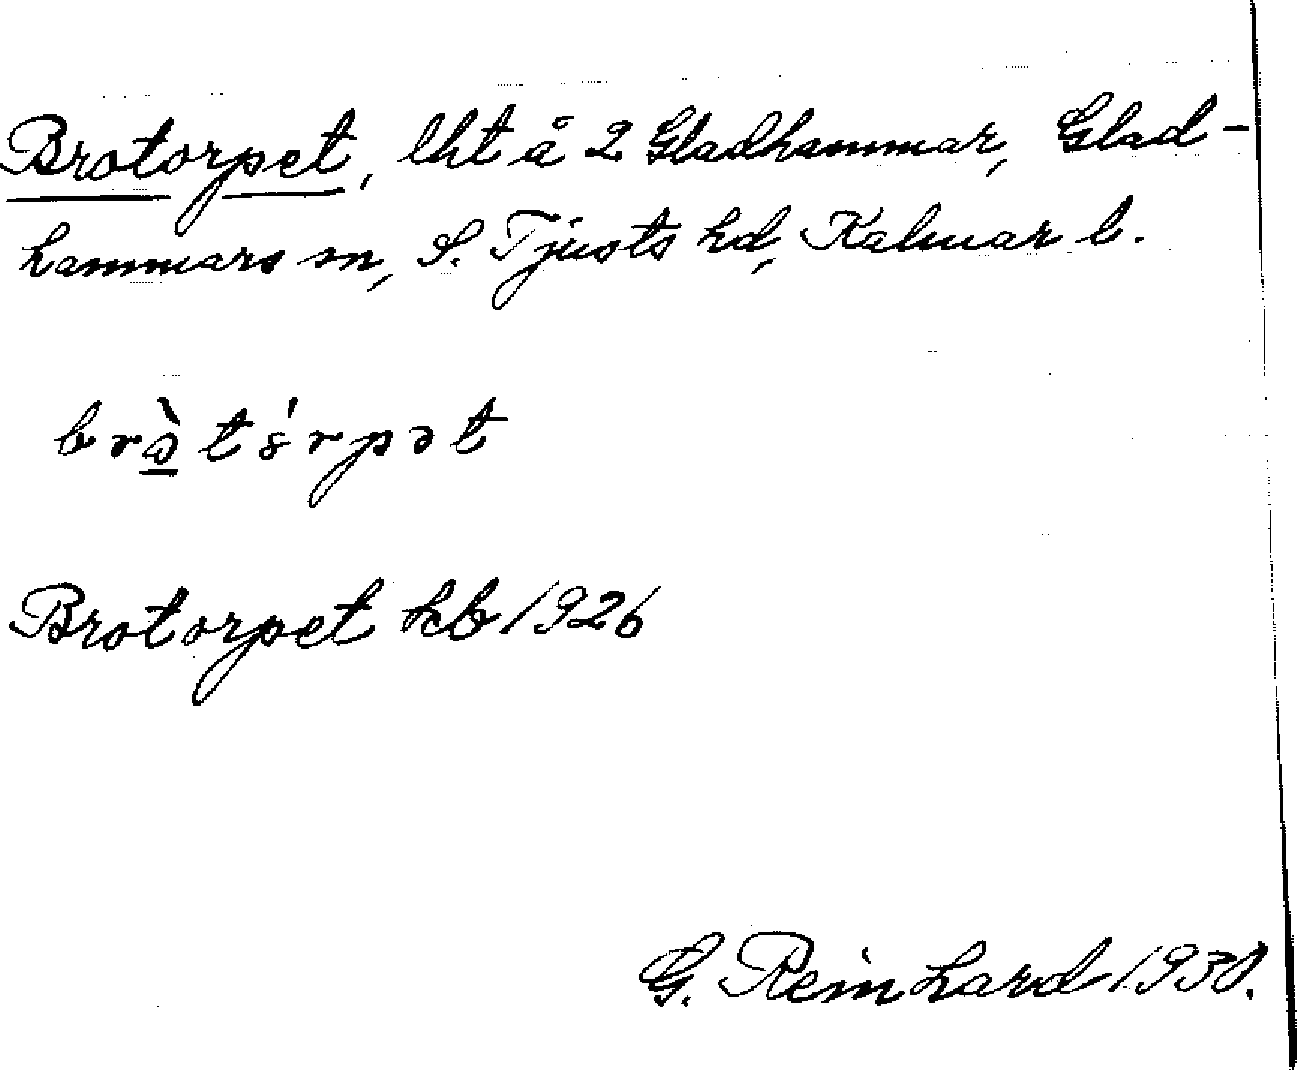 Brotorpet, lht å 2 Gladhammar, Glad-
hammars sn, S. Tjusts hd, Kalmar l.
Brotorpet kb 1926
G. Reinhard